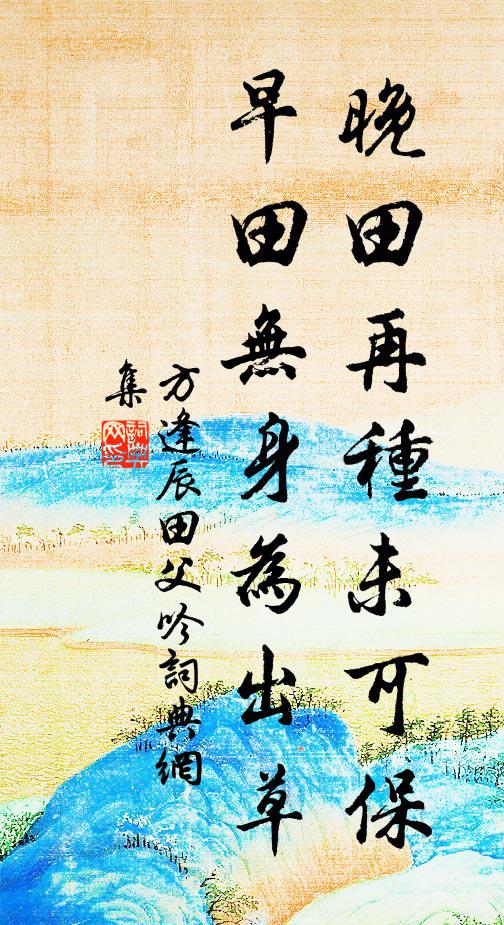 晚田再種未可保
早田無身為出草
方逢辰田父吟詞典網
集